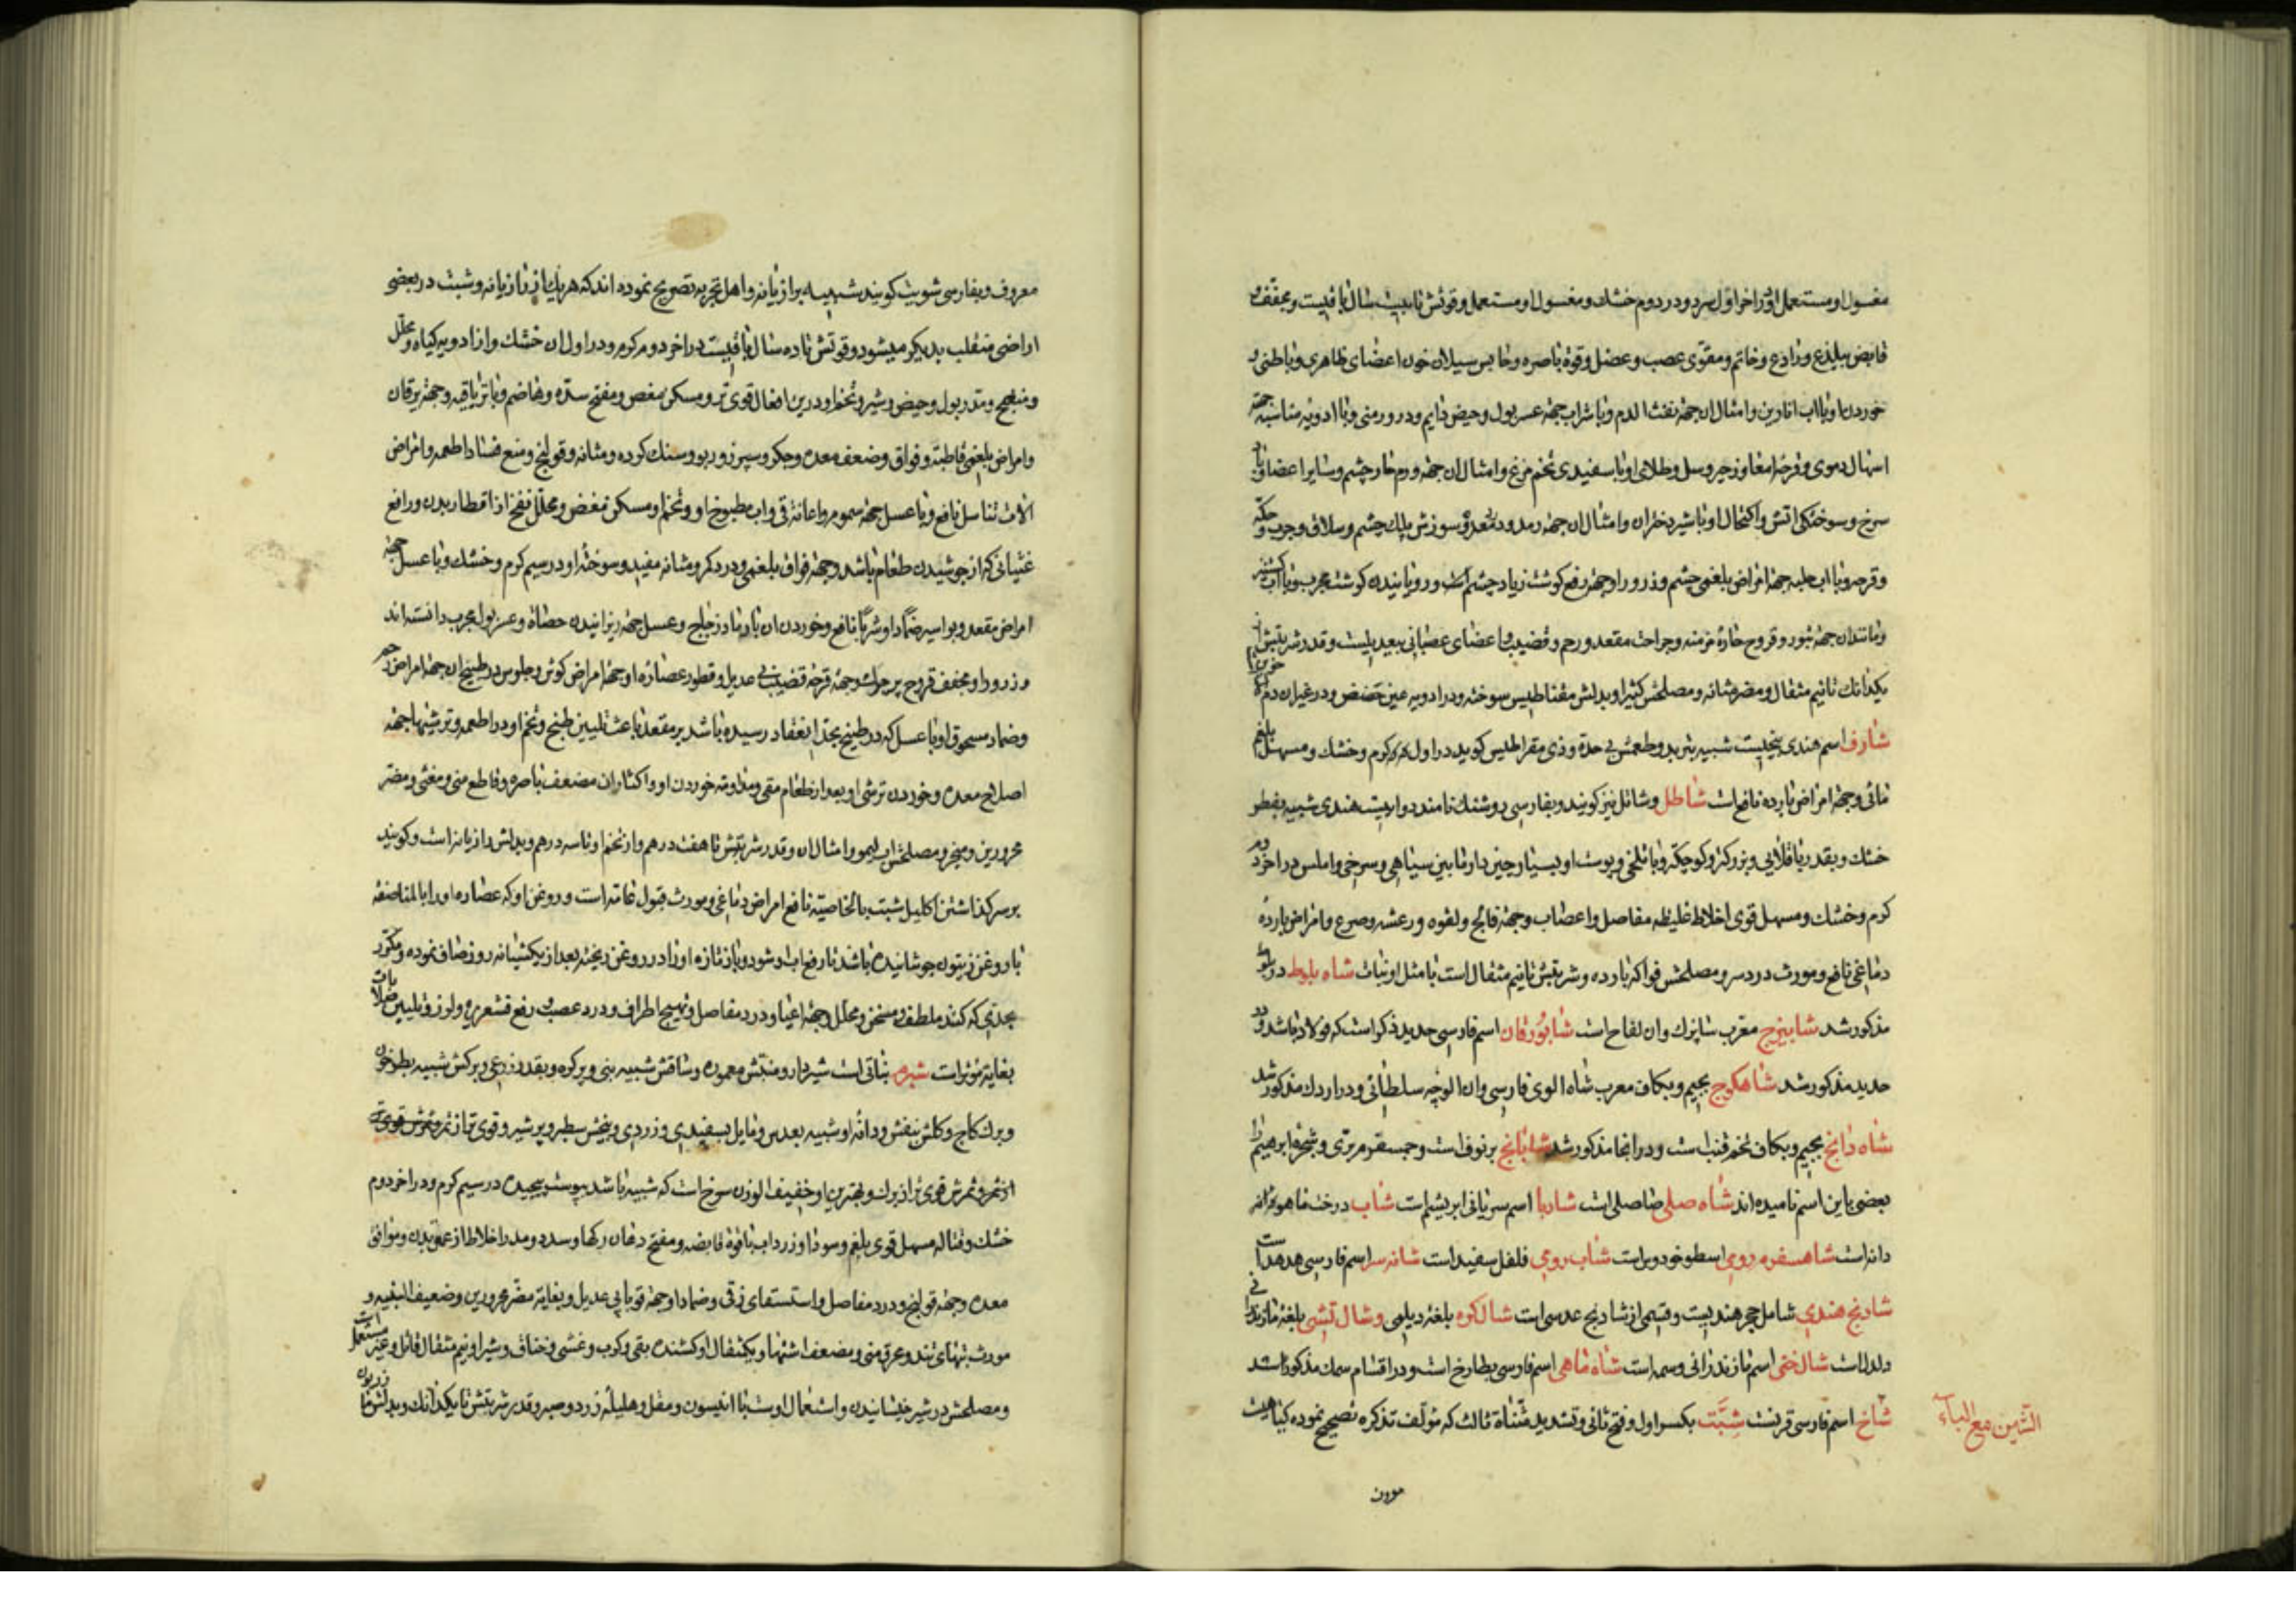 مغسول او مستعمل او در اخر اول سرد و در دوم خشك و مغسول او مستعمل و قوتش تا بیست سال باقیست و مجفف و
قابض بیلذع و رادع و خاتم و مقوی عصب و عضل و قوة باصره و حابس سیلان خون اعضای ظاهری و باطنی و
خوردن او با اب انارین و امثال ان جهة نفث الدم و با شراب جهة عسر بول و حیض دایم و درور منی و با ادویه مناسبه جهة
اسهال دموی و قرحه امعا و زحیر و سل و طلای او با سفیدی تخم مرغ و امثال ان جهة ورم حار چشم و سایر اعضا و باد
سرخ و سوختگی اتش و اکتحال او با شیر دختران و امثال ان جهة رمد و دمعه و سوزش پلك چشم و سلاق و جرب و حکه
و قرحه و با اب حلبه جهة امراض بلغمی چشم و ذرور او جهة رفع کوشت زیاد چشم است و رویانیدن کوشت مجرب و با اب کشنیز
و مانند ان جهة بثور و قروح حاره مزمنه و جراحت مقعد و رحم و قضیب و اعضای عصبانی بیعدیلست و قدر شربتش از
یکدانك تا نیم مثقال و مضر مثانه و مصلحش کثیرا و بدلش مغناطیس سوخته و در ادویه عین حضض و در غیر ان دم الاخوین
شارف اسم هندی بیخیست شبیه بتربد و طعمش بی حدة و ذی مقراطیس کوید در اول کرم و خشك و مسهل بلغم
مائی و جهة امراض بارده نافع است شاطل و شاتل نیز کویند و بفارسی روشنك نامند دواییست هندی شبیه بفطر
خشك و بقدر باقلائی و بزرکتر و کوچکتر و با تلخی و پوست او بسیار چین دار و مابین سیاهی و سرخی و املس در اخر دوم
کرم و خشك و مسهل قوی اخلاط غلیظه مفاصل و اعصاب و جهة فالج و لقوه و رعشه و صرع و امراض بارده
دماغی نافع و مورث دردسر و مصلحش فواکه بارده و شربتش تا نیم مثقال است با مثل او نبات شاه بلوط در بلوط
مذکور شد شابیزج معرب شابزك و ان لفاح است شابورقان اسم فارسی حدید ذکر است که فولاد باشد و در
حدید مذکور شد شاهکوج بجیم و بکاف معرب شاه الوی فارسی و ان الوچه سلطانی و در اردك مذکور شد
شاه دانج بجیم و بکاف تخم قنب است و در انجا مذکور شد شابانج برنوف است و جمسفرم بری و شجرة ابرهیم را
بعضی باین اسم نامیده اند شاه صلی صاصلی است شاربا اسم سریانی ابریشم است شاب درخت ماهودانه
دانه است شاهسفرم رومی اسطوخودوس است شاب رومی فلفل سفید است شانه سر اسم فارسی هدهد است
شادنج هندی شامل حجر هندیست و قسمی از شادنج عدسی است شالکوه بلغة دیلمی و شال تشی بلغة مازندرانی
دلدل است شال ختی اسم مازندرانی وسمه است شاه ماهی اسم فارسی بطارخ است و در اقسام سمك مذکور است
شاخ اسم فارسی قرنست شبت بکسر اول و فتح ثانی و تشدید مثناة ثالث که مؤلف تذکره تصحیح نموده کیاهیست
الشین مع الباء
معروف
معروف و بفارسی شویت کویند شبیه برازیانه و اهل تجربه تصریح نموده اند که هر یك از رازیانه و شبت در بعضی
اراضی منقلب بدیکر میشود و قوتش تا ده سال باقیست در اخر دوم کرم و در اول ان خشك و از ادویه کیاه و محلل
و منضج و مدر بول و حیض و شیر و تخم او درین افعال قوی تر و مسکن مغص و مفتح سده و هاضم و با تریاقیه و جهة یرقان
و امراض بلغمی قاطبة و فواق و ضعف معده و جکر و سپرز و ربو و سنك کرده و مثانه و قولنج و منع فساد اطعمه و امراض
الات تناسل نافع و با عسل جهة سموم و اعانة قی و اب مطبوخ او و تخم او مسکن مغص و محلل نفخ از اقطار بدن و رافع
غثیانی که از جوشیدن طعام باشد و جهة فواق بلغمی و درد کمر و مثانه مفید و سوخته او در سیم کرم و خشك و با عسل جهة
امراض مقعد و بواسیر ضمادا و شربا نافع و خوردن ان با رماد زجاج و عسل جهة ریزانیدن حصاة و عسر بول مجرب دانسته اند
و ذرور او مجفف قروح و جهة قرحه قضیب بی عدیل و قطور عصاره او جهة امراض کوش و جلوس در طبیخ ان جهة امراض رحم
و ضماد مسحوق او با عسل که در طبخ بحد انعقاد رسیده باشد بر مقعد باعث تلیین طبع و تخم او در اطعمه و ترشیها جهة
اصلاح معده و خوردن ترشی او بعد از طعام مقی و مداومة خوردن او و اکثار ان مضعف باصره و قاطع منی و مغثی و مضر
محرورین و مبخر و مصلحش اب لیمو و امثال ان و قدر شربتش تا هفت درهم و از تخم او تا سه درهم و بدلش رازیانه است و کویند
بر سر کذاشتن اکلیل شبت بالخاصیة نافع امراض دماغی و مورث قبول عامه است و روغن او که عصاره او را بالمناصفه
با روغن زیتون جوشانیده باشد تا رفع اب او شود و باز تازه او را در روغن ریخته بعد از یکشبانه روز صاف نموده و مکرر
بجدی که کنند ملطف و مسخن و محلل و جهة اعیا و درد مفاصل و تهییج اطراف و درد عصب و رفع قشعریره و لرز و تلیین صلابات
بغایة مؤثر است شبرم نباتی است شیردار و منبتش معموره و ساقش شبیه بنی و پرکره و بقدر ذرعی و برکش شبیه بطرخون
و برك کاج و کلش بنفش و دانه او شبیه بعدس و مایل بسفیدی و زردی و بیخش سطبر و پرشیر و قوی تر از ثمر
از ثمر و ثمرش قوی تر از برك و بهترین او خفیف الوزن سرخ است که شبیه باشد بپوست پیچیده در سیم کرم و در اخر دوم
خشك و مسهل قوی بلغم و سودا و زرداب با قوة قابضه و مفتح دهان رکها و سدد و مدر اخلاط از عمق بدن و موافق
معده و جهة قولنج و درد مفاصل و استسقای زقی و ضمادا جهة قوبا بی عدیل و بغایة مضر محرورین و ضعیف البنیه و
مورث تبهای تند و عرق منی و مضعف اشتها و یکمثقال او کشنده بقی و کرب و غشی و خناق و شیر او نیم مثقال قاتل و غیر مستعمل است
و مصلحش در شیر خیسانیدن و استعمال اوست با انیسون و مقل و هلیله زرد و صبر و قدر شربتش تا یکدانك و بدلش